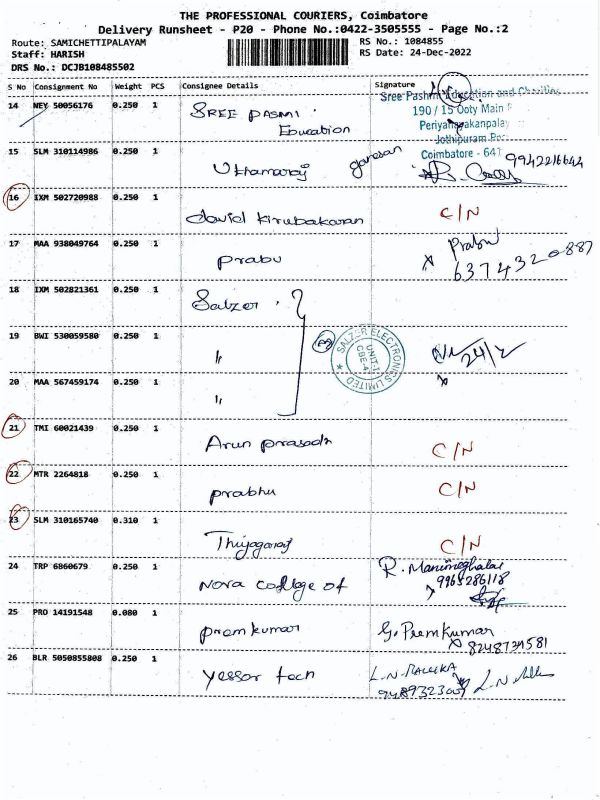 THE PROFESSIONAL COURIERS, Coimbatore
Delivery Runsheet - P20 - Phone No.:0422-3505555 - Page No.:2
Route: SAMICHETTIPALAYAM
RS No.: 1084855
Staff: HARISH
RS Date: 24-Dec-2022
DRS No.: DCJB108485502
S No Consignment No Weight PCS Consignee Details Signature
14 NEY 50056176 0.250 1 SREE PASMI Education
Sree Pashmi Education and Charities
190 / 15 Ooty Main
Periyanayakanpalay
Jothipuram Po
Coimbatore - 641
15 SLM 310114986 0.250 1 Uthamaraj ganesan 9942216644
16 IXM 502720988 0.250 1 david kirubakaran C/N
17 MAA 938049764 0.250 1 prabu Prabu 6374320887
18 IXM 502821361 0.250 1 Salzer
19 BWI 530059580 0.250 1 "
SALZER ELECTRONICS LIMITED
UNIT-I
CBE-47
20 MAA 567459174 0.250 1 "
21 TMI 60021439 0.250 1 Arun prasadh C/N
22 MTR 2264818 0.250 1 prabhu C/N
23 SLM 310165740 0.310 1 Thiyagaraj C/N
24 TRP 6860679 0.250 1 Nova college of R. Manimeghalai 9965286118
25 PRO 14191548 0.080 1 premkumar G. PremKumar 8248734581
26 BLR 5050855808 0.250 1 yessor tech L.N.